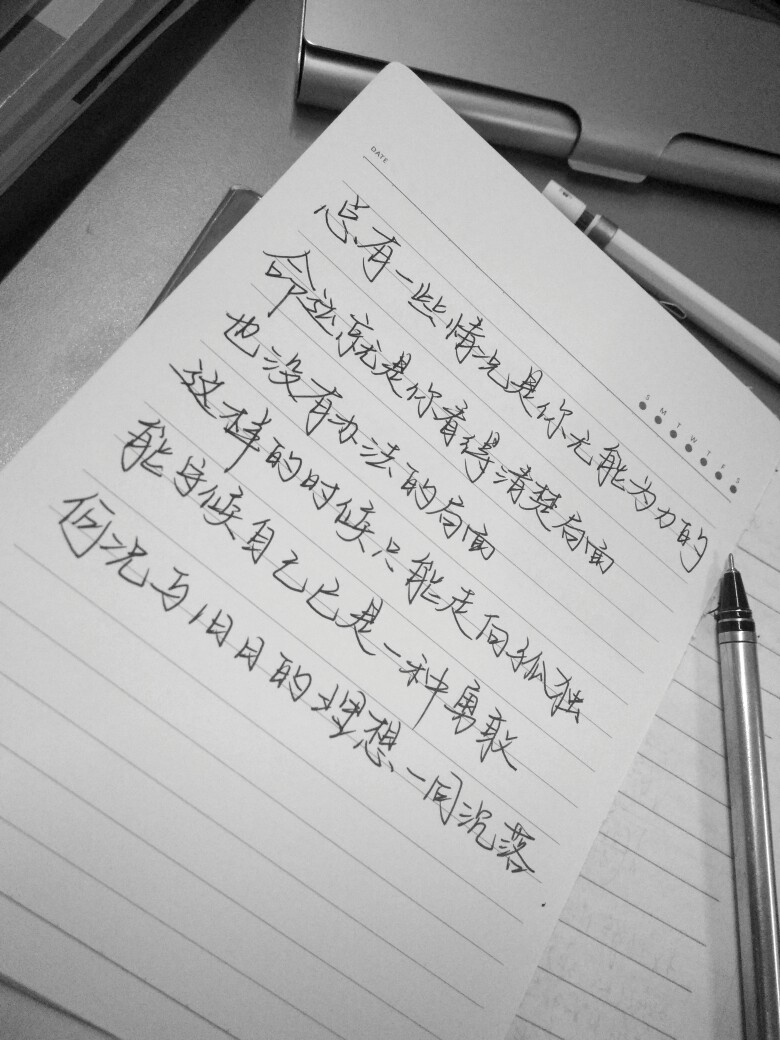 DATE
S M T W T F S
总有一些情况是你无能为力的
命运就是你看得清楚局面
也没有办法的局面
这样的时候只能走向孤独
能守候自己已是一种勇敢
何况与旧日的理想一同沉落